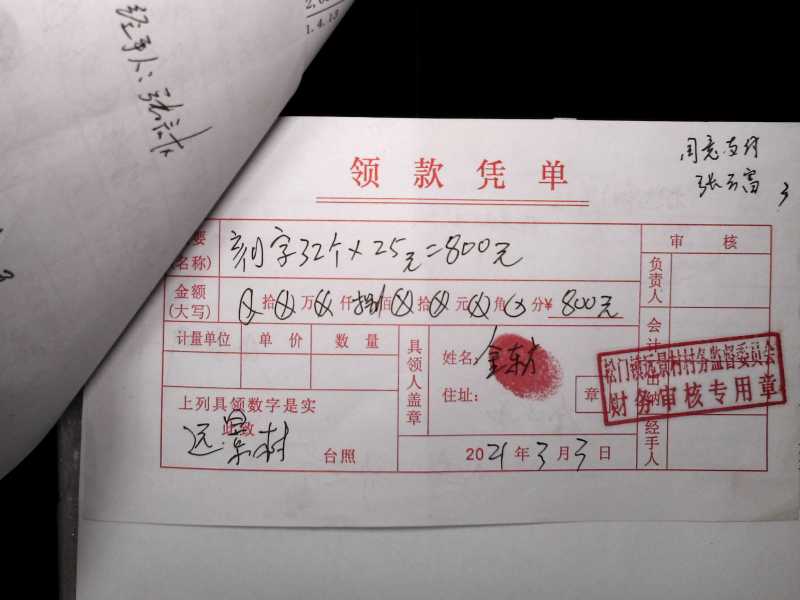 1.4.13
经手人:
领款凭单
同意支付
要
名称)
刻字32个×25元=800元
审核
金额
(大写)
拾 万 仟 捌 佰 拾 元 角 分¥ 800元
负责人
计量单位 单价 数量
具领人盖章
姓名: 金东方
住址:
章
会计
出纳
松门镇远景村村务监督委员会
财务审核专用章
上列具领数字是实
此致
远景村
台照
2021年3月3日
经手人